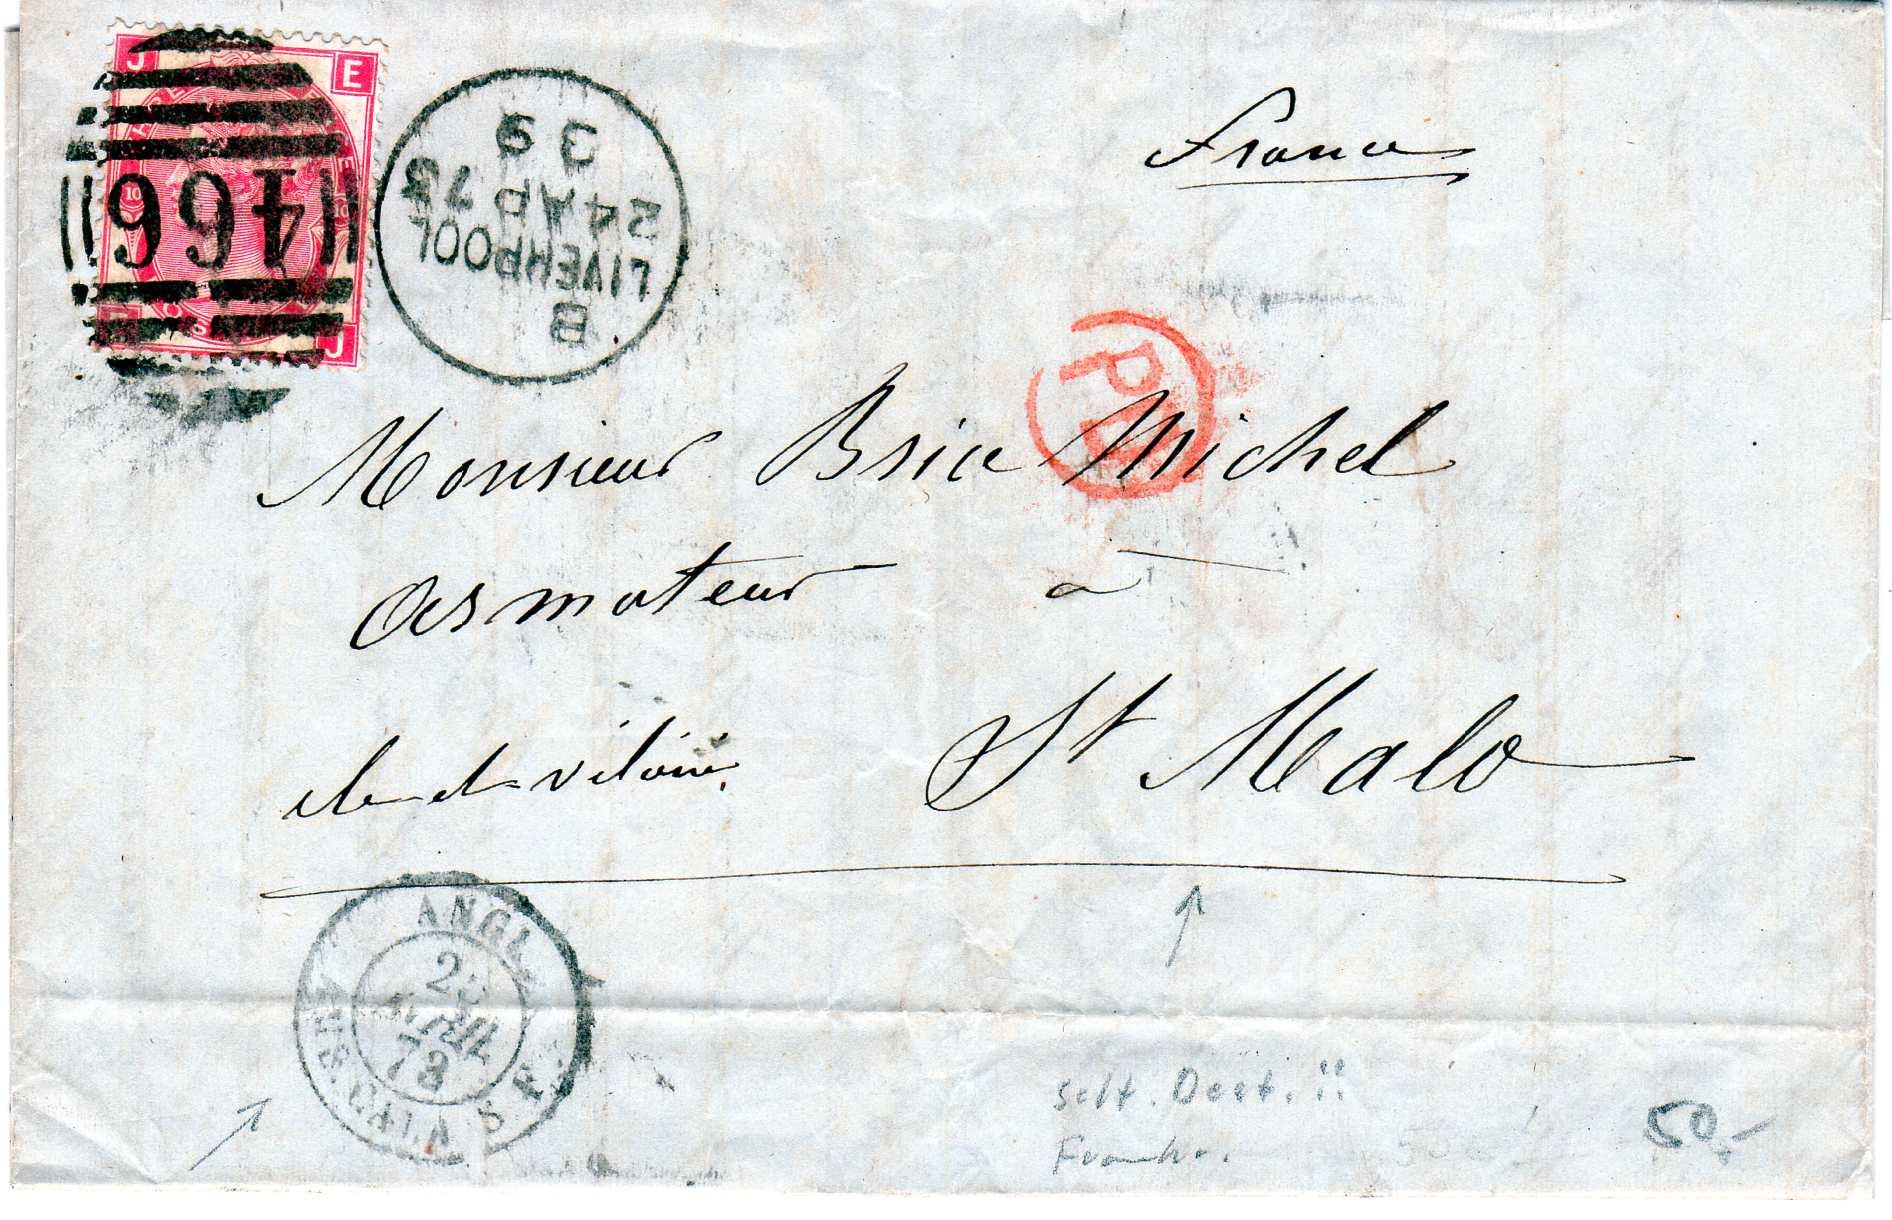 J E
466
10 10
E J
B
LIVERPOOL
24 AP 73
39
France
PD
Monsieur Brice Michel
armateur à
St Malo
ile et vilaine.
ANGL.
25
AVRIL
73
AMB. CALAIS F
selt. Dest. !!
Frankr.
50.-